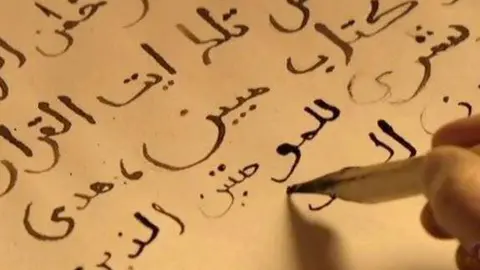 تلك ايت القران
كتاب مبين ، هدى
بشرى للمو منين الذين